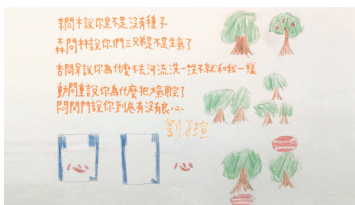 李問木說你是不是沒有種子
森問林說你們三兄弟是不是生氣了
杏問呆說你為什麼去河流洗一洗不就和我一樣
動問重說你為什麼把力
悶問門說你到底有沒有良心
劉
心
心